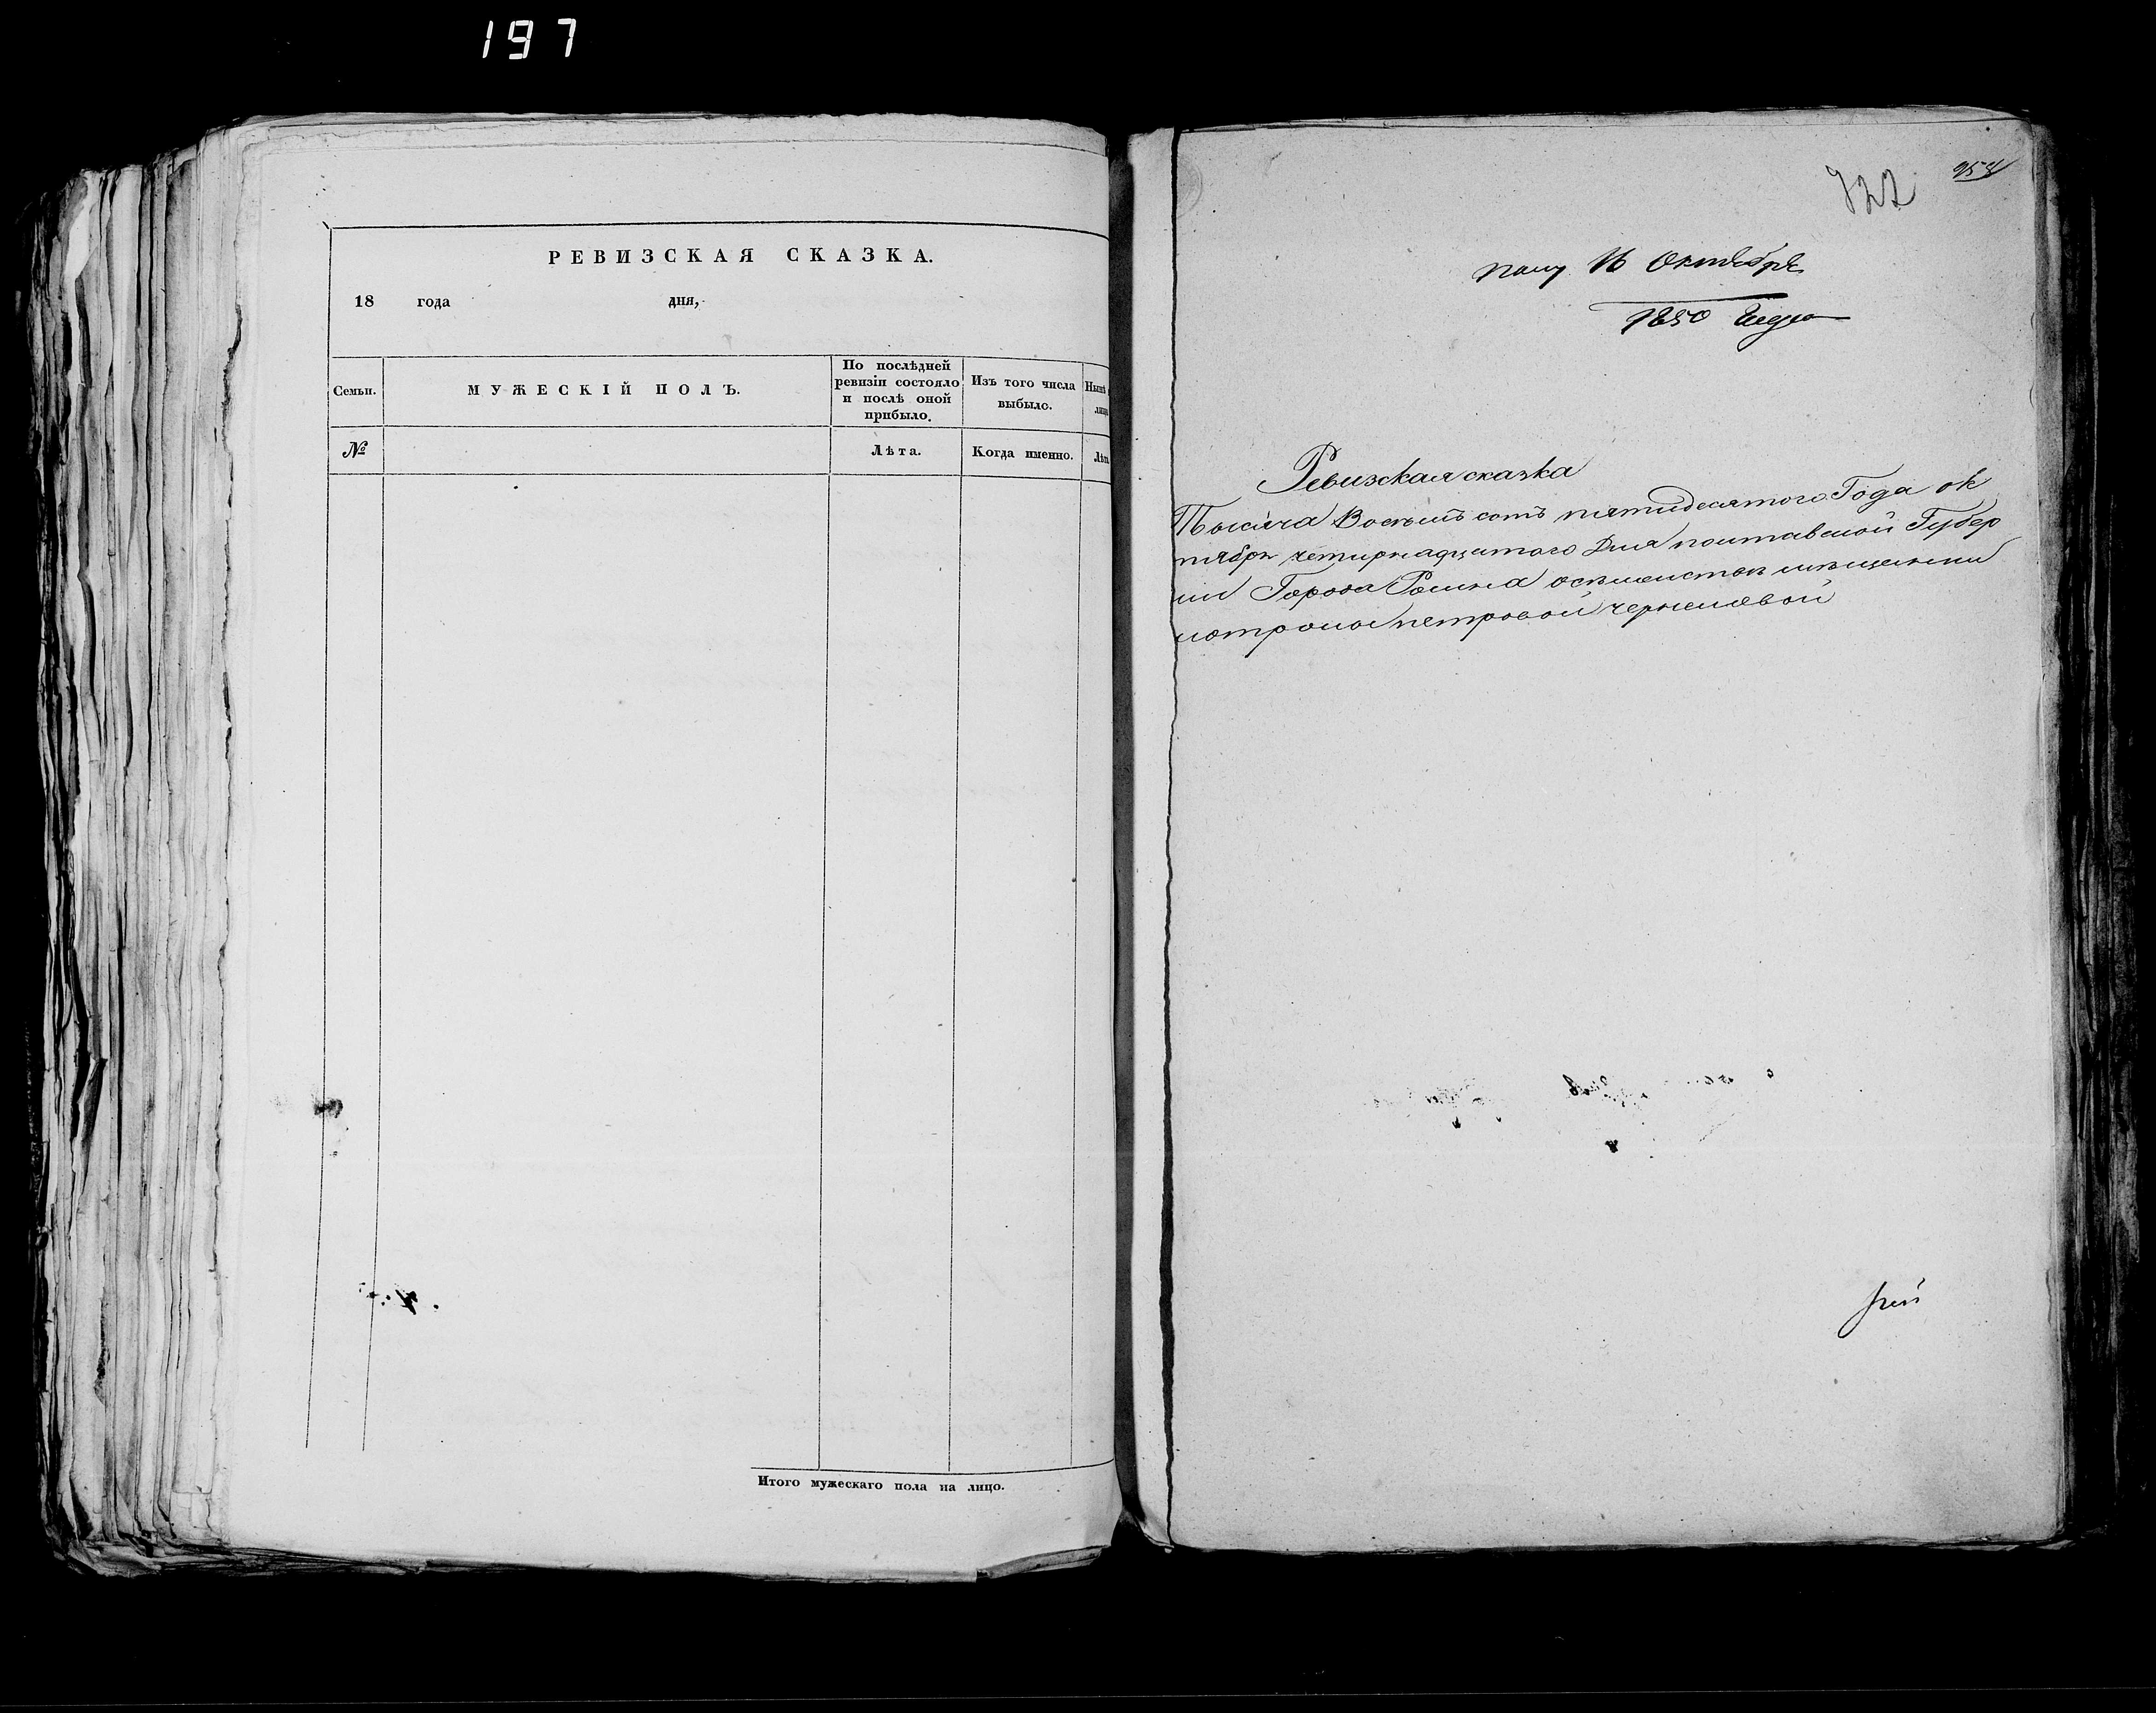 197
РЕВИЗСКАЯ СКАЗКА.
18 года дня,
Семьи.
МУЖЕСКІЙ ПОЛЪ.
По послѣдней
ревизіи состояло
и послѣ оной
прибыло.
Изъ того числа
выбыло.
№
Лѣта.
Когда именно.
Итого мужескаго пола на лицо.
16 Октебря
1850
Ревизская сказка
Тысяча Восемъ сотъ пятидесятого Года ок
тября четирнадцатого Дня полтавской Губер
нии Города Ромна
петровой